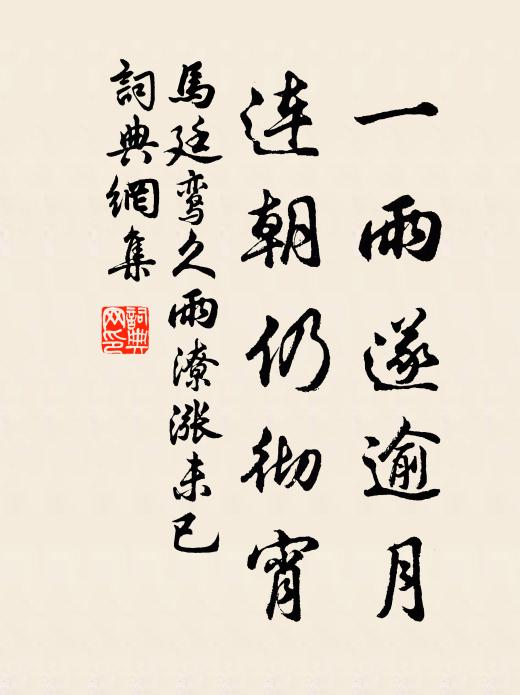 一雨遂逾月
連朝仍彻宵
馬廷鸾久雨潦涨未已
詞典網集
詞典
网印